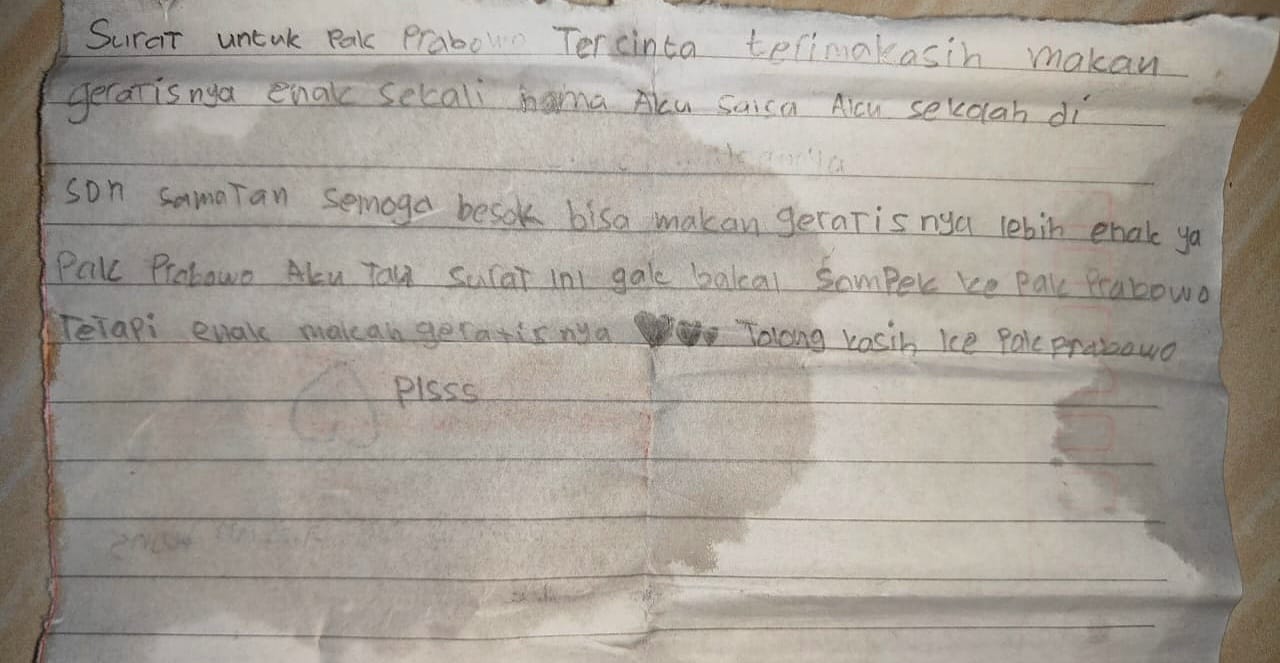 Surat untuk Pak Prabowo Tercinta terimakasih makan
geratisnya enak sekali nama Aku Saisa Aku sekolah di
SDN Samatan semoga besok bisa makan geratis nya lebih enak ya
Pak Prabowo Aku Tau Surat ini gak bakal Sampek ke Pak Prabowo
Tetapi enak makan geratis nya Tolong kasih ke Pak Prabowo
PISSS